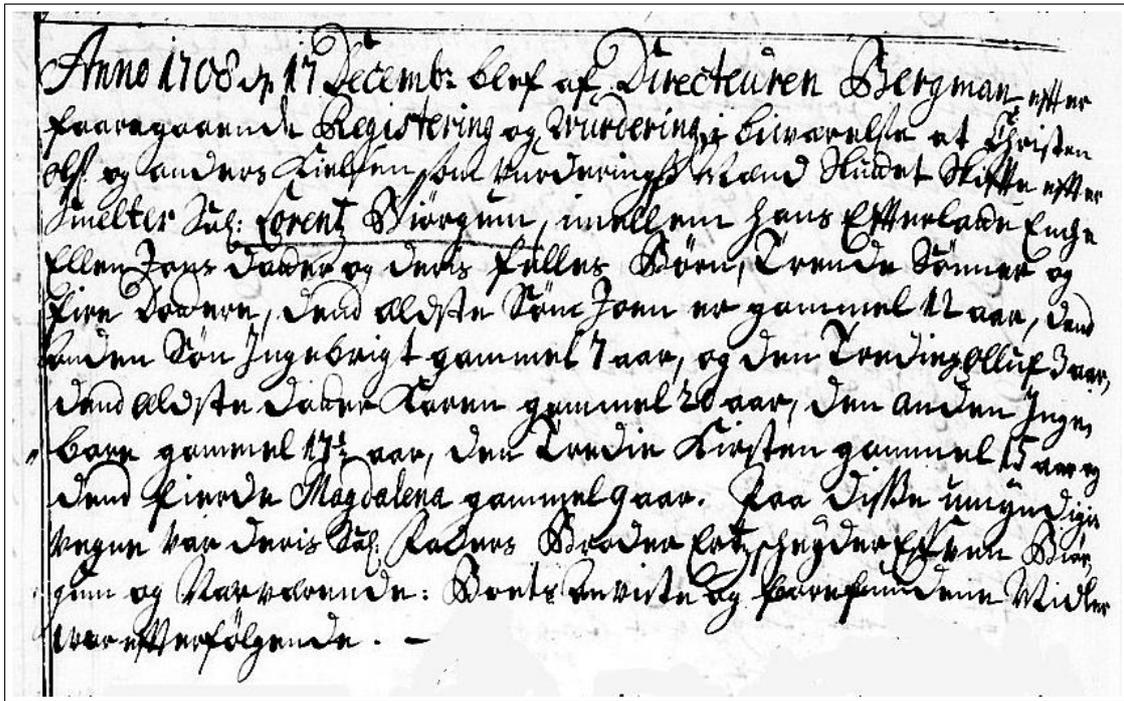 Anno 1708 dn 17 Decembr: blef af Directeuren Bergman efter
foregaaende Registering og Wurdering, i biiwærelse at Christen
Ols: og Anders Kielsen som Wurderings Mænd Sluttet Skiffte efter
Smelter Sal: Lorentz Biörgum, imellem hans Efterladte Enche
Ellen Jons Datter og deris fælles Börn, Trende Sönner og
fire Döttre, dend ældste Sön Joen er gammel 12 aar, dend
anden Sön Ingebrigt gammel 7 aar, og den Tredie Olluf 3 aar,
dend ældste datter Karen gammel 20 aar, den anden Inge,
borg gammel 17½ aar, den Tredie Kirsten gammel 15 aar og
dend fierde Magdalena gammel 9 aar. Paa disse umyndigis
vegne var deris Sal: Faders Broder Ertzscheyder Biör,
gum og Nærværende: Boets anviste og forefundene Midler
war efterfölgende. —